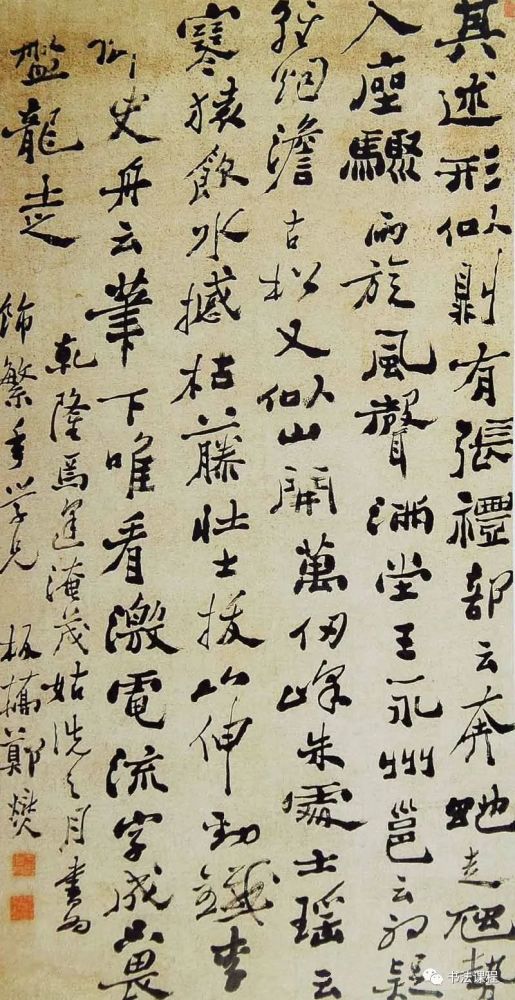 其述形似則有張禮部云奔蛇走虺勢
入座驟雨旋風聲滿堂王永州邕云初疑
輕烟澹古松又似山開萬仞峰朱處士瑤云
寒猿飲水撼枯藤壯士拔山伸勁鐵李
御史舟云筆下唯看激電流字成只畏
盤龍走
乾隆焉逢淹茂姑洗之月書為
飾繁年學兄 板橋鄭燮
书法课程